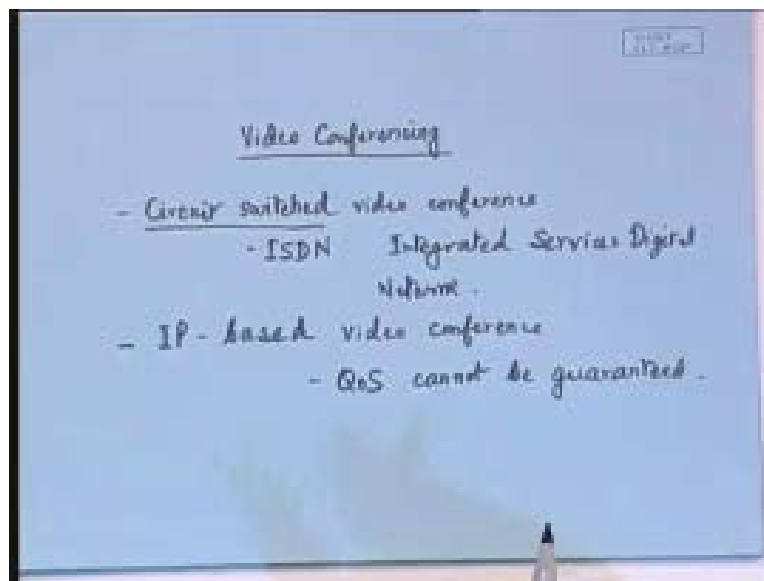 Video Conferencing
- Circuit switched video conference
- ISDN Integrated Services Digital
Network.
- IP-based video conference
- QoS cannot be guaranteed.